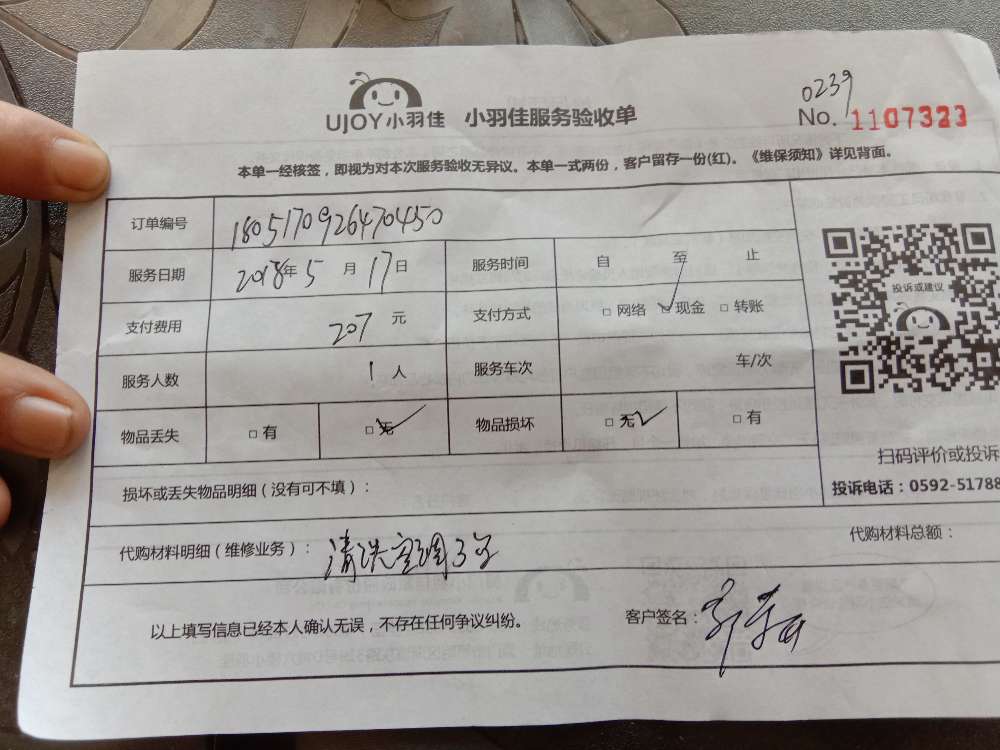 0239
UJOY小羽佳 小羽佳服务验收单 No. 1107323
本单一经核签，即视为对本次服务验收无异议。本单一式两份，客户留存一份(红)。《维保须知》详见背面。
订单编号 1805170926470450
服务日期 2018年5月17日 服务时间 自 至 止
支付费用 207元 支付方式 □网络 □现金 □转账
服务人数 1人 服务车次 车/次
投诉或建议
物品丢失 □有 □无 物品损坏 □无 □有
扫码评价或投诉
损坏或丢失物品明细（没有可不填）：
投诉电话：0592-51788
代购材料明细（维修业务）： 清洗空调3台 代购材料总额：
以上填写信息已经本人确认无误，不存在任何争议纠纷。 客户签名：